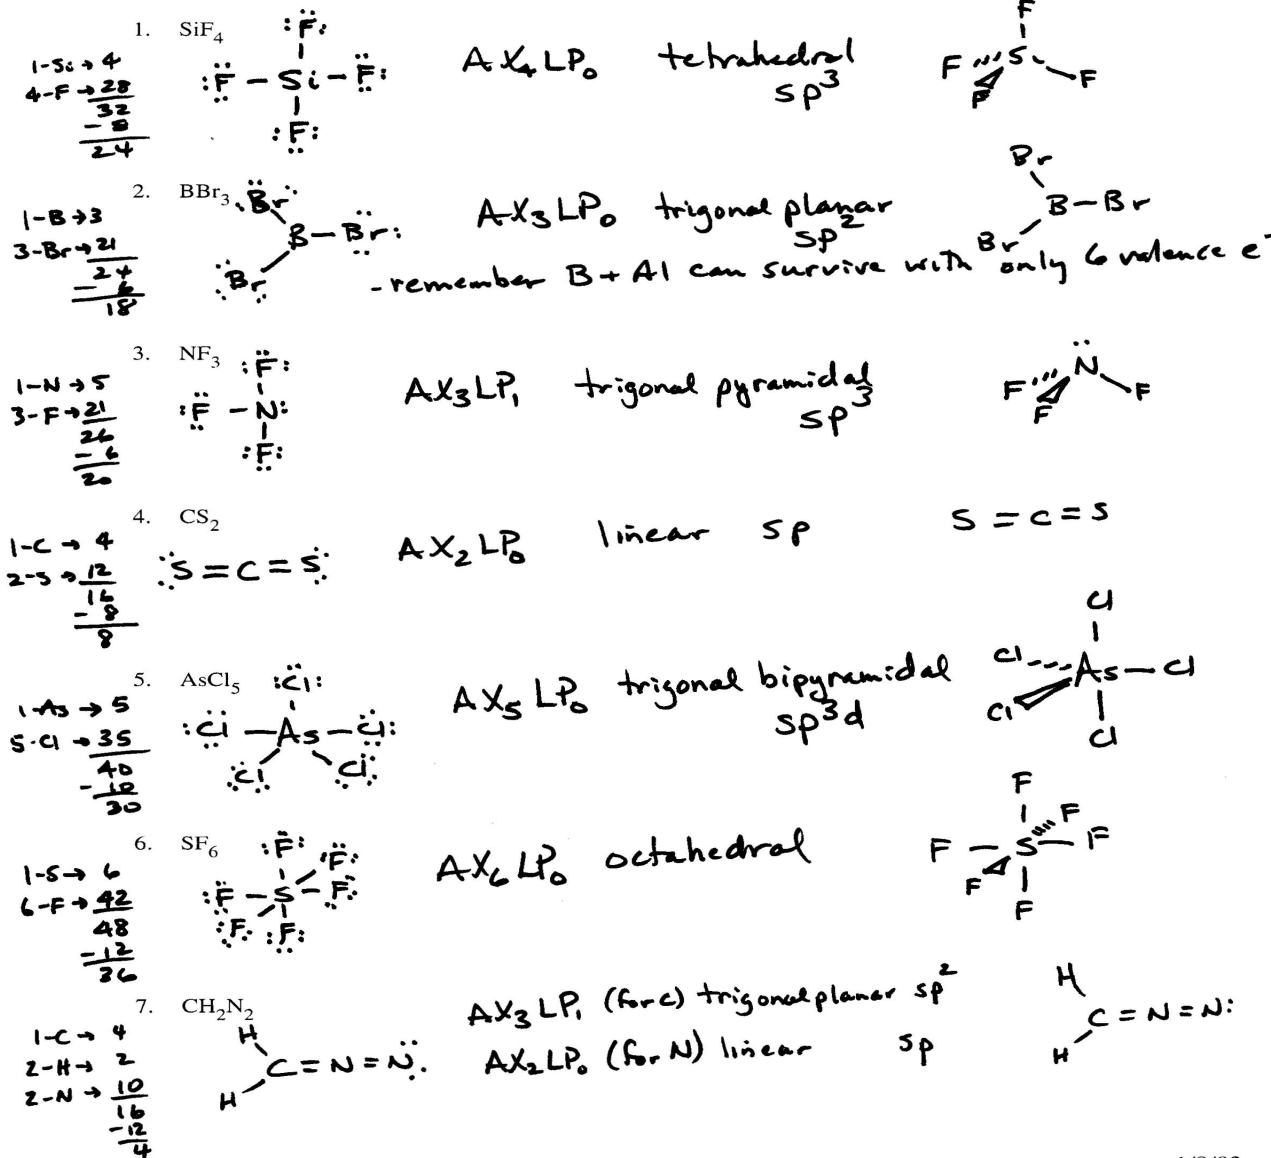 1. SiF4
1-Si → 4
4-F → 28
32
- 8
24
:F:
:F - Si - F:
:F:
AX4LP0 tetrahedral
sp3
F
F S F
F
2. BBr3
1-B → 3
3-Br → 21
24
- 6
18
Br
B - Br:
Br
AX3LP0 trigonal planar
sp2
Br
B - Br
Br
- remember B + Al can survive with only 6 valence e-
3. NF3
1-N → 5
3-F → 21
26
- 6
20
:F:
:F - N:
:F:
AX3LP1 trigonal pyramidal
sp3
N
F F
F
4. CS2
1-C → 4
2-S → 12
16
- 8
8
:S = C = S:
AX2LP0 linear sp
S = C = S
5. AsCl5
1-As → 5
5-Cl → 35
40
- 10
30
:Cl:
:Cl - As - Cl:
:Cl: Cl:
AX5LP0 trigonal bipyramidal
sp3d
Cl
Cl As - Cl
Cl
Cl
6. SF6
1-S → 6
6-F → 42
48
- 12
36
:F: F:
:F - S - F:
:F: :F:
AX6LP0 octahedral
F
F
F - S - F
F
F
7. CH2N2
1-C → 4
2-H → 2
2-N → 10
16
-12
4
H
C = N = N:
H
AX3LP1 (for C) trigonal planar sp2
AX2LP0 (for N) linear sp
H
C = N = N:
H